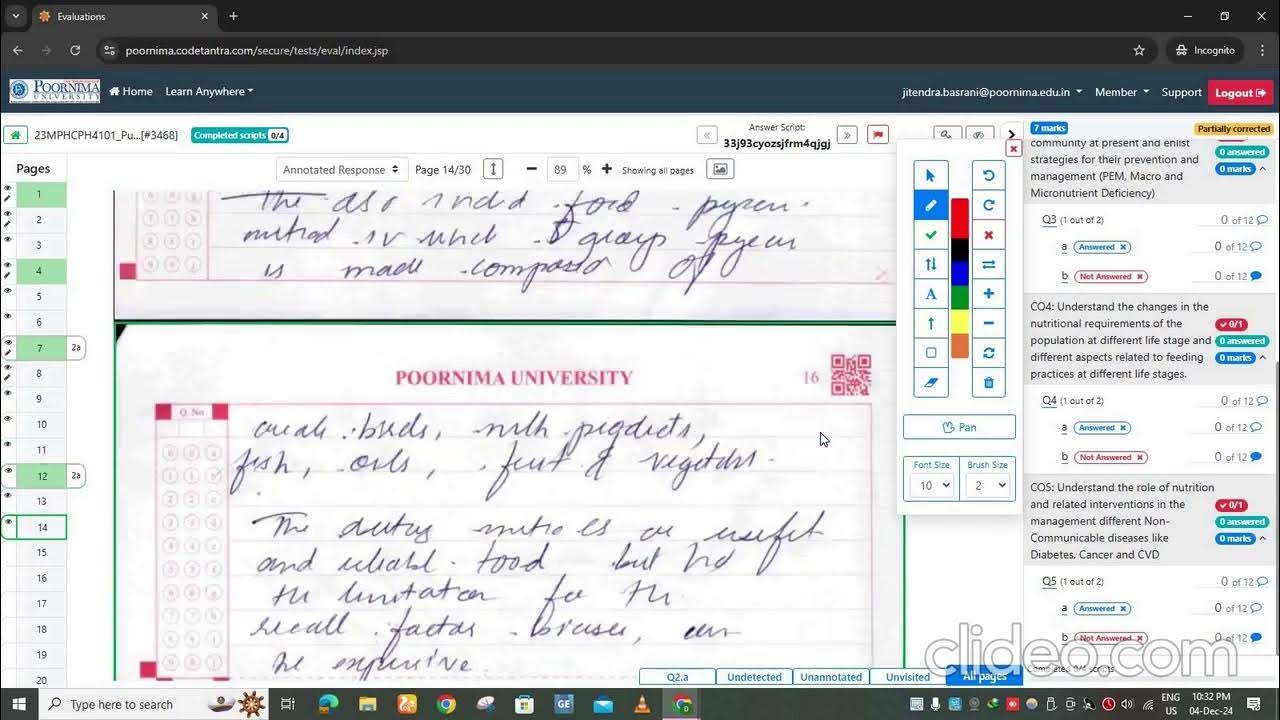 Evaluations
poornima.codetantra.com/secure/tests/eval/index.jsp
Incognito
POORNIMA UNIVERSITY
Home
Learn Anywhere
jitendra.basrani@poornima.edu.in
Member
Support
Logout
23MPHCPH4101_Pu...[#3468]
Completed scripts 0/4
Answer Script:
33j93cyozsjfrm4qjgj
7 marks
Partially corrected
Pages
Annotated Response
Page 14/30
89 %
Showing all pages
1
2
3
4
5
6
7 2a
8
9
10
11
12 2a
13
14
15
16
17
18
19
20
food
method in which 5 groups
is made of
POORNIMA UNIVERSITY
16
Q. No
fish, oils, fruit &
The
and food but
the limitation for the
recall factor can
be expensive.
Pan
Font Size
10
Brush Size
2
community at present and enlist
strategies for their prevention and
management (PEM, Macro and
Micronutrient Deficiency)
0 answered
0 marks
Q3 (1 out of 2) 0 of 12
a Answered 0 of 12
b Not Answered 0 of 12
CO4: Understand the changes in the
nutritional requirements of the
population at different life stage and
different aspects related to feeding
practices at different life stages.
0/1
0 answered
0 marks
Q4 (1 out of 2) 0 of 12
a Answered 0 of 12
b Not Answered 0 of 12
CO5: Understand the role of nutrition
and related interventions in the
management different Non-
Communicable diseases like
Diabetes, Cancer and CVD
0/1
0 answered
0 marks
Q5 (1 out of 2) 0 of 12
a Answered 0 of 12
b Not Answered 0 of 12
Q2.a
Undetected
Unannotated
Unvisited
All pages
Completed 0/4 scripts
clideo.com
Type here to search
ENG
US
10:32 PM
04-Dec-24